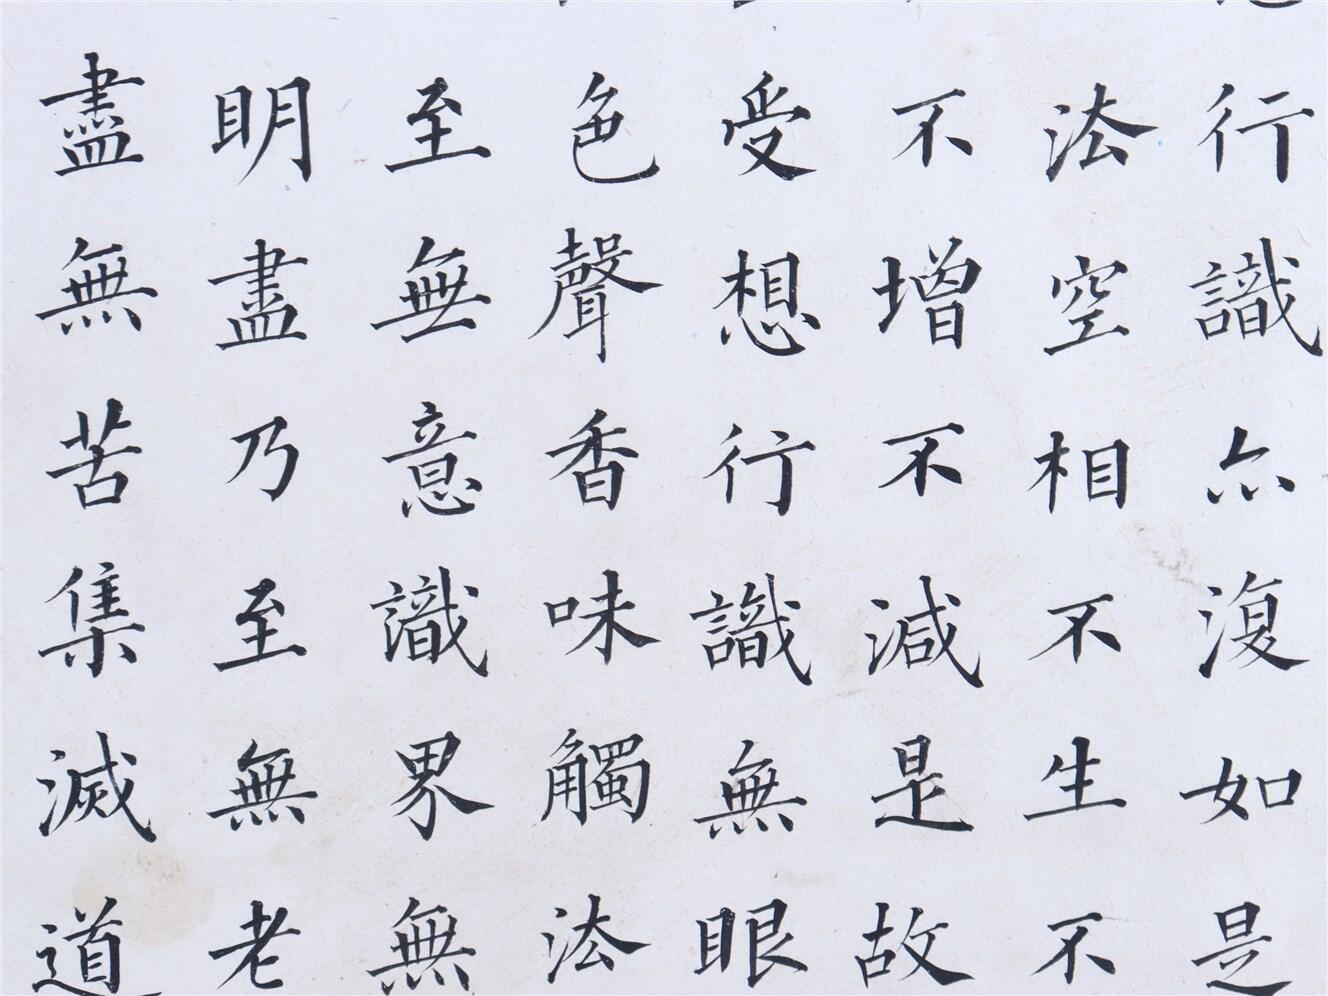 行識亦復如是
法空相不生不
不增不減是故
受想行識無眼
色聲香味觸法
至無意識界無
明盡乃至無老
盡無苦集滅道